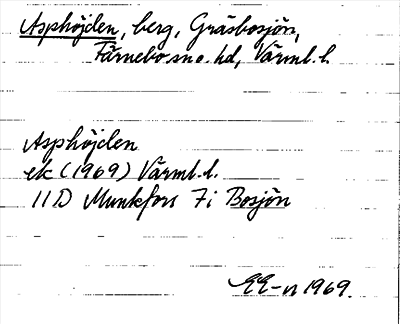 Asphöjden, berg, Gräsbosjön,
Färnebo sn o. hd, Värml. l.
Asphöjden
ek (1969) Värml. l.
11D Munkfors 7i Bosjön
EE-n 1969.